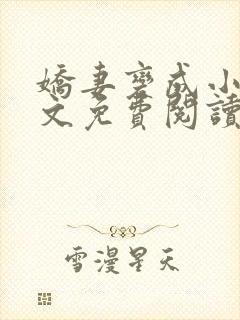 嬌妻變成小
文免費閱讀
雪漫星天